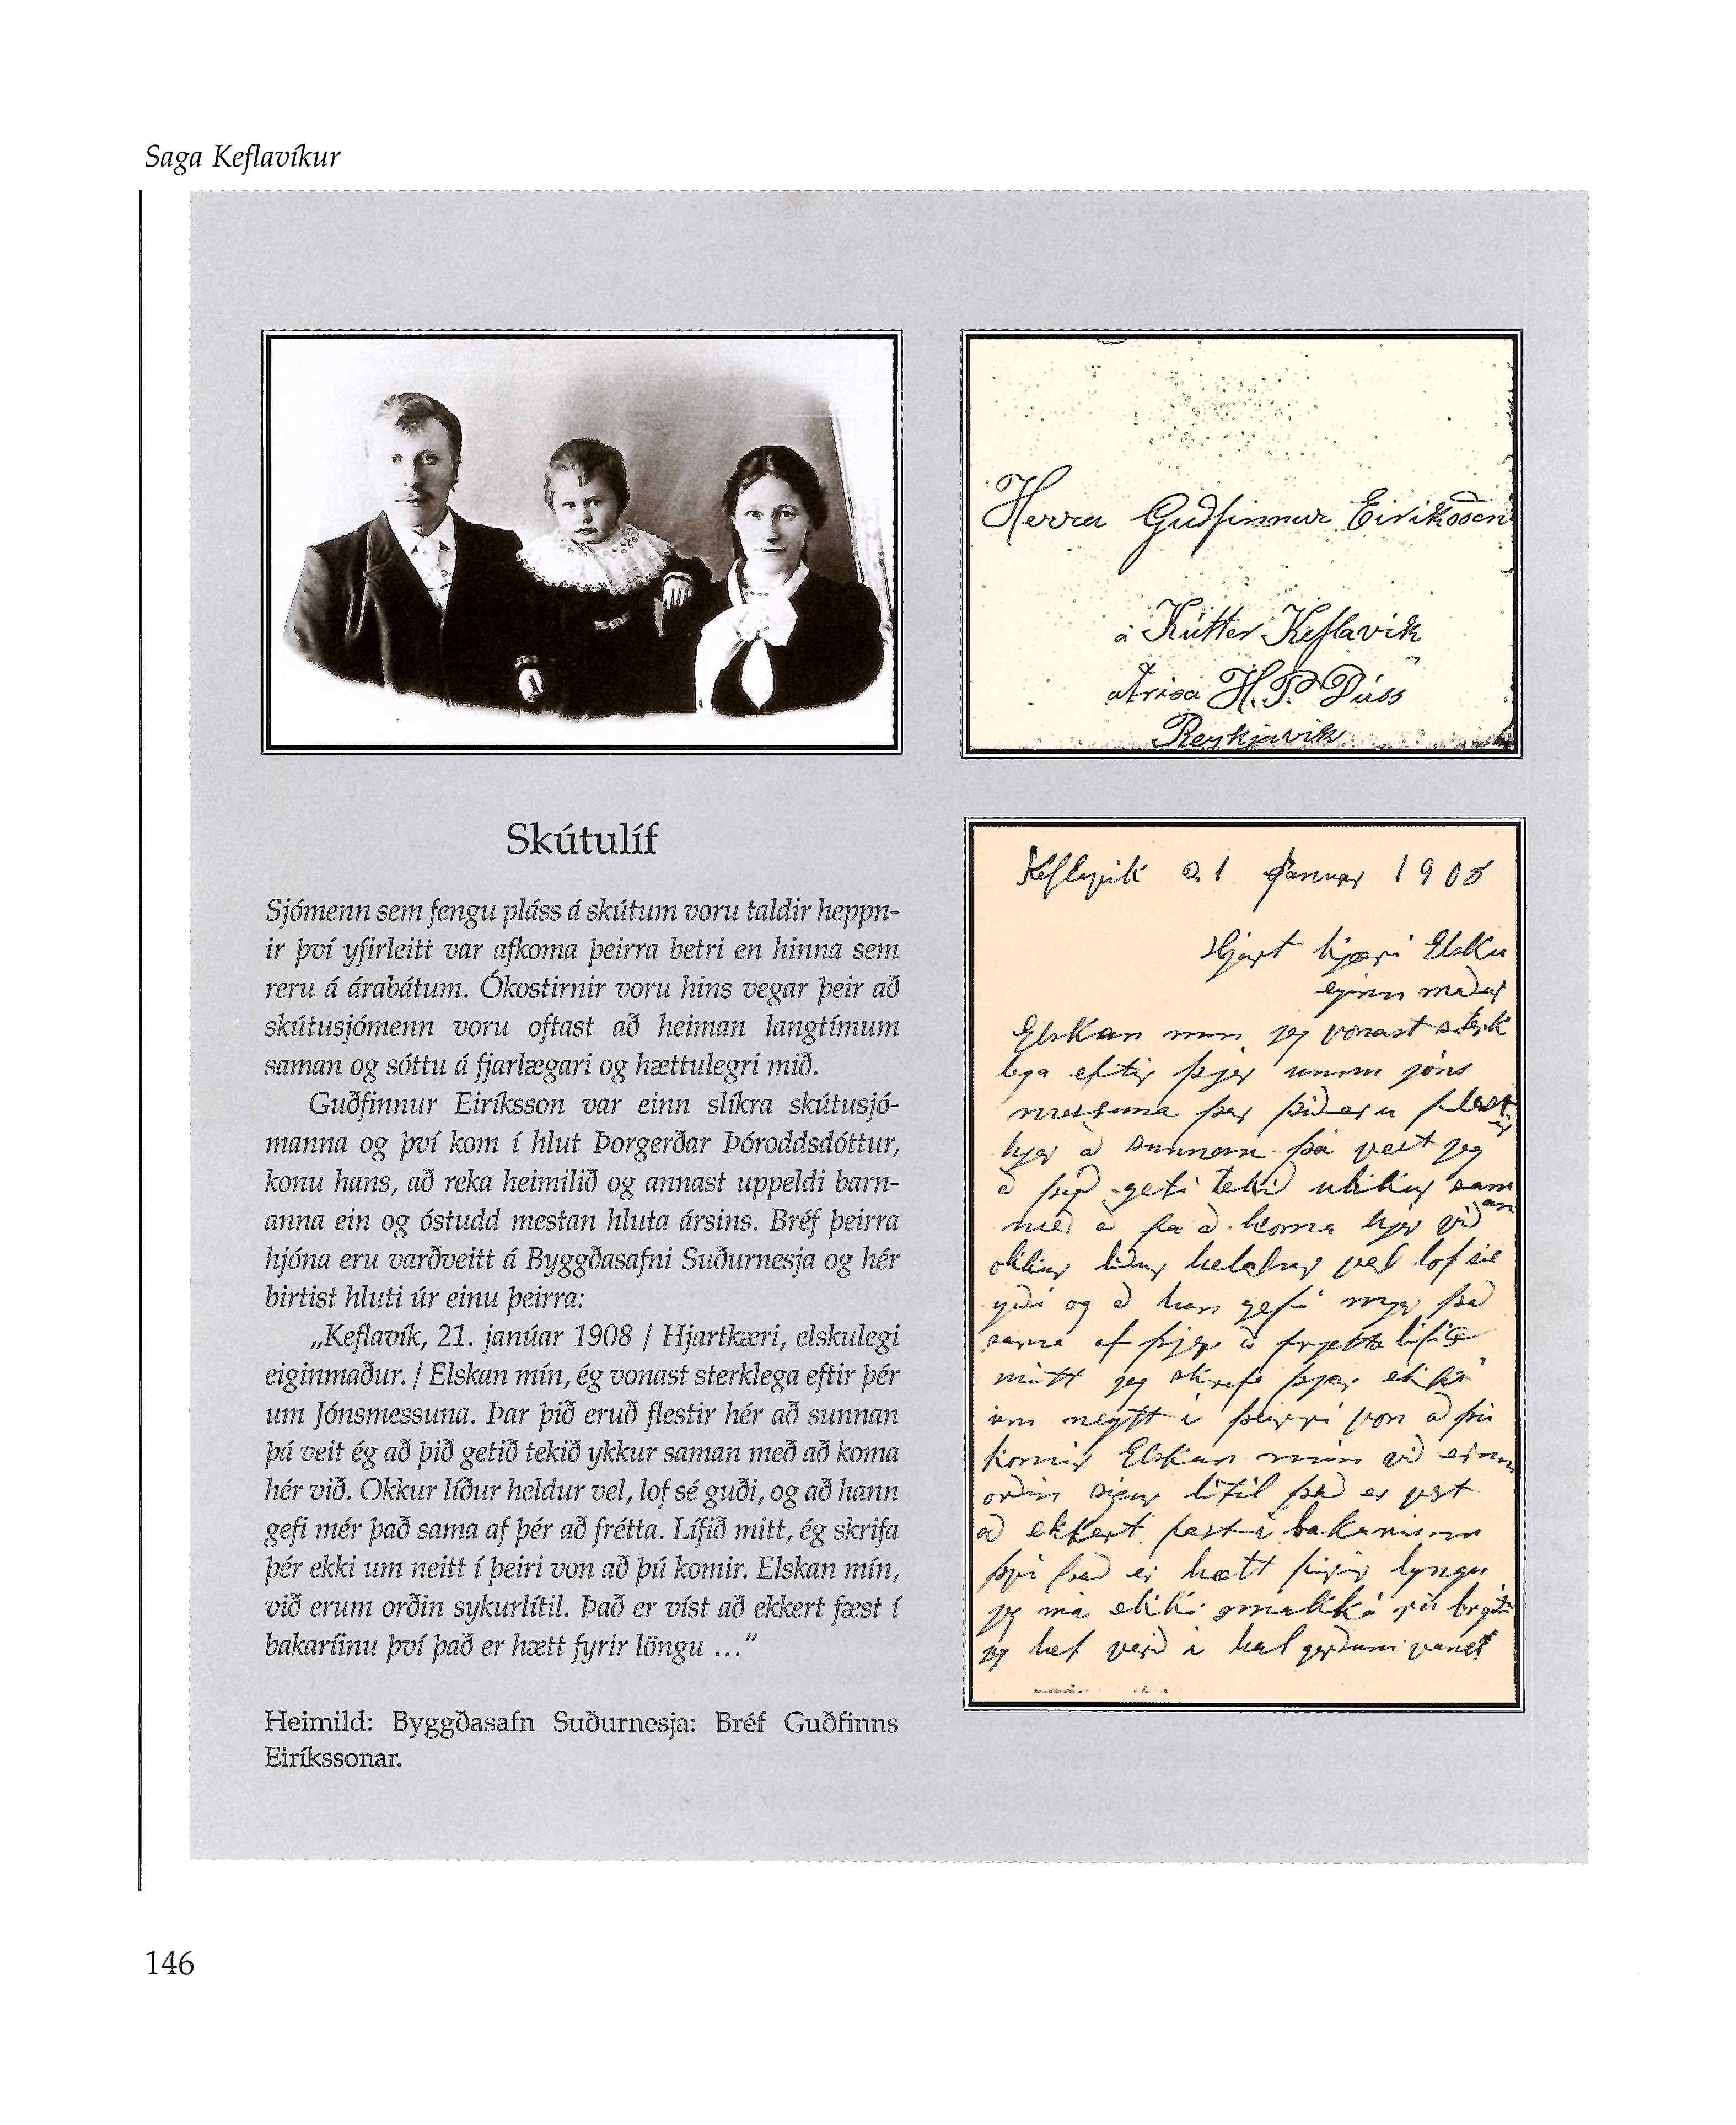 Saga Keflavíkur
Herra Guðfinnur Eiriksson
á Kútter Keflavik
H. P. Dúss
Reykjavik
Skútulíf
Sjómenn sem fengu pláss á skútum voru taldir heppn-
ir því yfirleitt var afkoma þeirra betri en hinna sem
reru á árabátum. Ókostirnir voru hins vegar þeir að
skútusjómenn voru oftast að heiman langtímum
saman og sóttu á fjarlægari og hættulegri mið.
Guðfinnur Eiríksson var einn slíkra skútusjó-
manna og því kom í hlut Þorgerðar Þóroddsdóttur,
konu hans, að reka heimilið og annast uppeldi barn-
anna ein og óstudd mestan hluta ársins. Bréf þeirra
hjóna eru varðveitt á Byggðasafni Suðurnesja og hér
birtist hluti úr einu þeirra:
„Keflavík, 21. janúar 1908 / Hjartkæri, elskulegi
eiginmaður. / Elskan mín, ég vonast sterklega eftir þér
um Jónsmessuna. Þar þið eruð flestir hér að sunnan
þá veit ég að þið getið tekið ykkur saman með að koma
hér við. Okkur líður heldur vel, lof sé guði, og að hann
gefi mér það sama af þér að frétta. Lífið mitt, ég skrifa
þér ekki um neitt í þeiri von að þú komir. Elskan mín,
við erum orðin sykurlítil. Það er víst að ekkert fæst í
bakaríinu því það er hætt fyrir löngu …“
Heimild: Byggðasafn Suðurnesja: Bréf Guðfinns
Eiríkssonar.
Keflavik 21 Januar 1908
Hjart kjæri Elsku
eginn maður
Elskan min jeg vonast sterk
lega eftir þjer umm jóns
messuna þar þið eru flest
hjer að sunnan þá veit jeg
að þið geti tekið ukkur sam
með að koma hjer við
okkur liður heldur vel lof sie
og að han gefi mjer það
sama af þjer að frjetta lifið
mitt jeg skrifa þjer ekki
um neytt i þeirri von að þú
komir Elskan min við erum
orðin litil það er vist
að ekkert fæst i bakarinu
þvi það er hætt firir lyngu
jeg má ekki smakka
jeg hef verið i
146